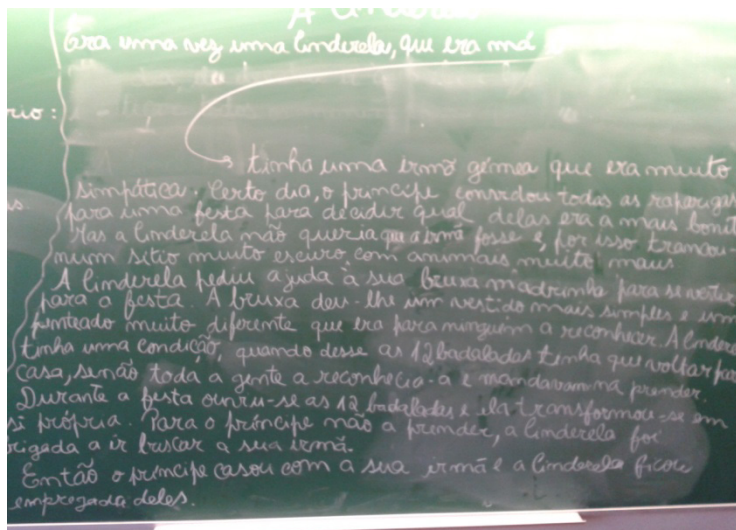 A
Era uma vez uma Cinderela, que era má
rio:
tinha uma irmã gémea que era muito
simpática. Certo dia, o príncipe convidou todas as raparigas
para uma festa para decidir qual delas era a mais
Mas a Cinderela não queria que a irmã fosse e, por isso
num sítio muito escuro, com animais muito maus
A Cinderela pediu ajuda à sua bruxa madrinha para se vestir
para a festa. A bruxa deu-lhe um vestido mais simples e um
penteado muito diferente que era para ninguém a reconhecer. A
tinha uma condição, quando desse as 12 badaladas tinha que voltar
casa, senão toda a gente a reconhecia-a e prender.
Durante a festa ouviu-se as 12 badaladas e ela transformou-se em
si própria. Para o príncipe não a prender, a Cinderela foi
a ir buscar a sua irmã.
Então o príncipe casou com a sua irmã e a Cinderela ficou
empregada deles.